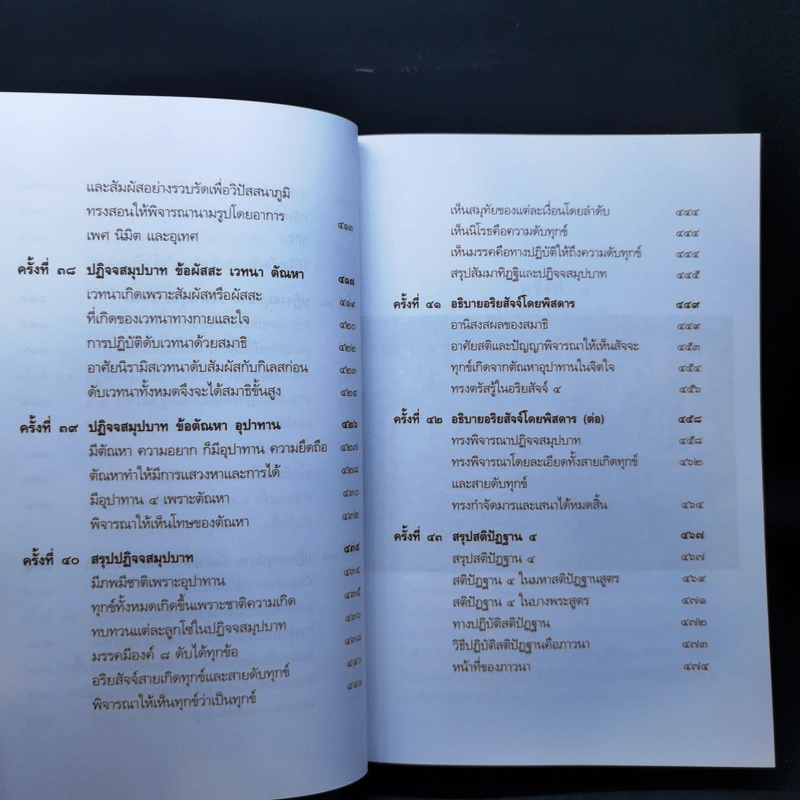 และสัมผัสอย่างรวบรัดเพื่อวิปัสสนาภูมิ
ทรงสอนให้พิจารณานามรูปโดยอาการ
เพศ นิมิต และอุเทศ ๔๑๓
ครั้งที่ ๓๘ ปฏิจจสมุปบาท ข้อผัสสะ เวทนา ตัณหา ๔๑๗
เวทนาเกิดเพราะสัมผัสหรือผัสสะ ๔๑๘
ที่เกิดของเวทนาทางกายและใจ ๔๒๐
การปฏิบัติดับเวทนาด้วยสมาธิ ๔๒๒
อาศัยนิรามิสเวทนาดับสัมผัสกับกิเลสก่อน ๔๒๓
ดับเวทนาทั้งหมดจึงจะได้สมาธิขั้นสูง ๔๒๔
ครั้งที่ ๓๙ ปฏิจจสมุปบาท ข้อตัณหา อุปาทาน ๔๒๖
มีตัณหา ความอยาก ก็มีอุปาทาน ความยึดถือ ๔๒๗
ตัณหาทำให้มีการแสวงหาและการได้ ๔๒๘
มีอุปาทาน ๔ เพราะตัณหา ๔๓๐
พิจารณาให้เห็นโทษของตัณหา ๔๓๒
ครั้งที่ ๔๐ สรุปปฏิจจสมุปบาท
มีภพมีชาติเพราะอุปาทาน
ทุกข์ทั้งหมดเกิดขึ้นเพราะชาติความเกิด
ทบทวนแต่ละลูกโซ่ในปฏิจจสมุปบาท
มรรคมีองค์ ๘ ดับได้ทุกข้อ
อริยสัจจ์สายเกิดทุกข์และสายดับทุกข์
พิจารณาให้เห็นทุกข์ว่าเป็นทุกข์
เห็นสมุทัยของแต่ละเงื่อนโดยลำดับ ๔๔๔
เห็นนิโรธคือความดับทุกข์ ๔๔๔
เห็นมรรคคือทางปฏิบัติให้ถึงความดับทุกข์ ๔๔๔
สรุปสัมมาทิฏฐิและปฏิจจสมุปบาท ๔๔๕
ครั้งที่ ๔๑ อธิบายอริยสัจจ์โดยพิสดาร ๔๔๙
อานิสงสผลของสมาธิ ๔๔๙
อาศัยสติและปัญญาพิจารณาให้เห็นสัจจะ ๔๕๓
ทุกข์เกิดจากตัณหาอุปาทานในจิตใจ ๔๕๔
ทรงตรัสรู้ในอริยสัจจ์ ๔ ๔๕๖
ครั้งที่ ๔๒ อธิบายอริยสัจจ์โดยพิสดาร (ต่อ) ๔๕๘
ทรงพิจารณาปฏิจจสมุปบาท ๔๕๘
ทรงพิจารณาโดยละเอียดทั้งสายเกิดทุกข์ ๔๖๒
และสายดับทุกข์
ทรงกำจัดมารและเสนาได้หมดสิ้น ๔๖๔
ครั้งที่ ๔๓ สรุปสติปัฏฐาน ๔ ๔๖๗
สรุปสติปัฏฐาน ๔ ๔๖๗
สติปัฏฐาน ๔ ในมหาสติปัฏฐานสูตร ๔๖๙
สติปัฏฐาน ๔ ในบางพระสูตร ๔๗๑
ทางปฏิบัติสติปัฏฐาน ๔๗๒
วิธีปฏิบัติสติปัฏฐานคือภาวนา ๔๗๓
หน้าที่ของภาวนา ๔๗๔